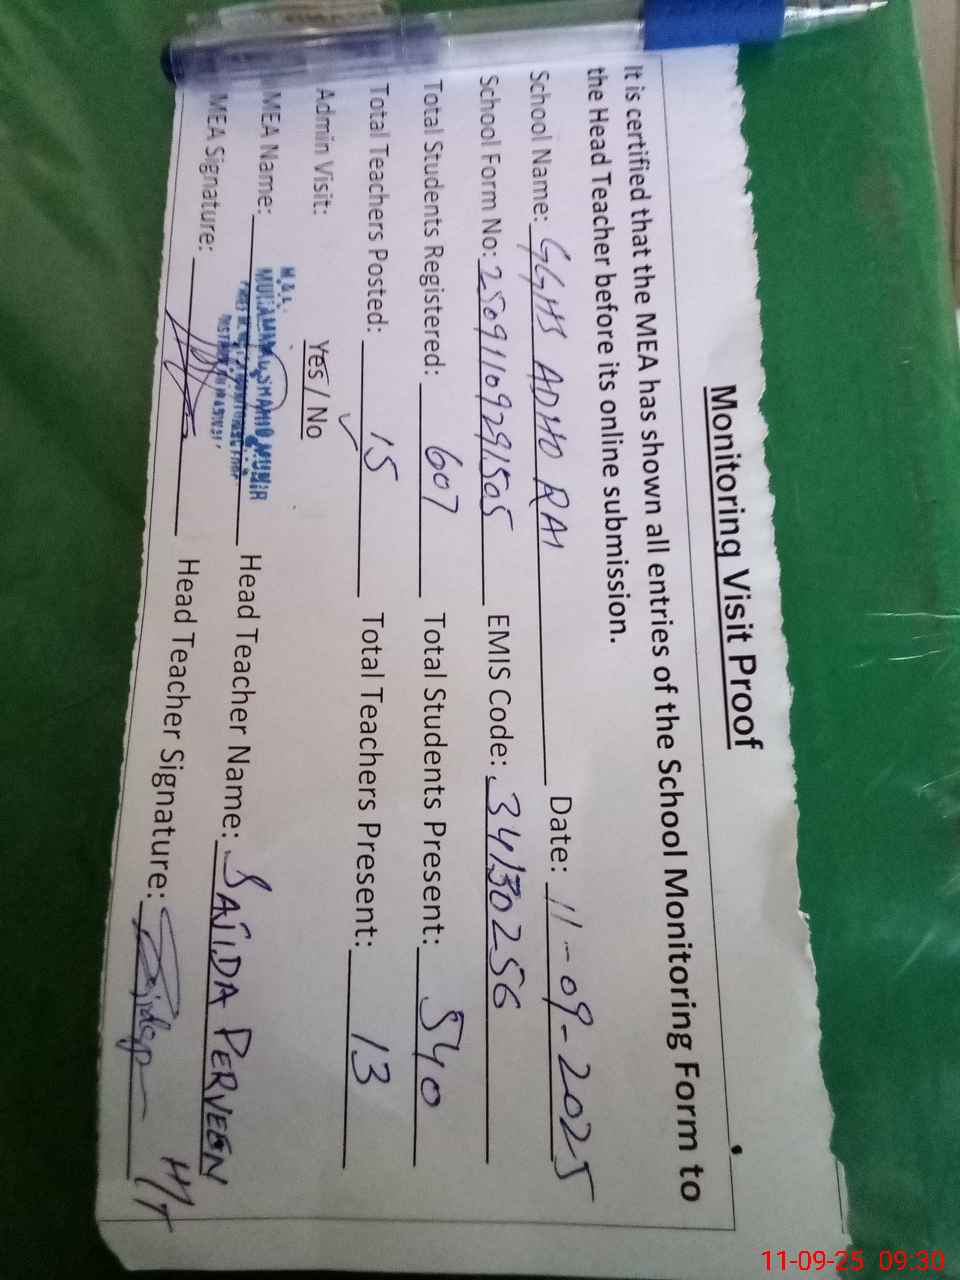 Monitoring Visit Proof
It is certified that the MEA has shown all entries of the School Monitoring Form to
the Head Teacher before its online submission.
School Name: GGHS ADHO RAI Date: 11-09-2025
School Form No: 25091109291505 EMIS Code: 34130256
Total Students Registered: 607 Total Students Present: 540
Total Teachers Posted: 15 Total Teachers Present: 13
Admin Visit: Yes / No
M.E.A.
MUHAMMAD SHAHID MUNIR
MEA Name: Head Teacher Name: SAJIDA PERVEEN
MEA Signature: Head Teacher Signature: H/T
11-09-25 09:30